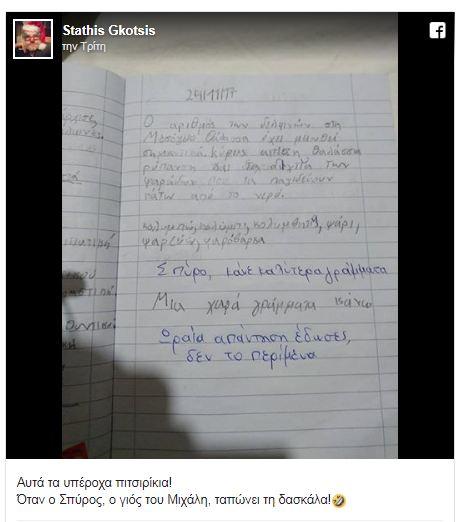 Stathis Gkotsis
την Τρίτη
Ο αριθμός των δελφινιών στη
Μεσόγειο θάλασσα έχει μειωθεί
σημαντικά κυρίως
ρύπανση και δίχτυα των
ψαράδων που τα παγιδεύουν
κάτω από το νερό.
κολυμπώ, κολύμπι, κολυμβητής, ψάρι,
ψαρεύω, ψαρόβαρκα
Σπύρο, κάνε καλύτερα γράμματα
Μια χαρά γράμματα κάνω
Ωραία απάντηση έδωσες,
δεν το περίμενα
Αυτά τα υπέροχα πιτσιρίκια!
Όταν ο Σπύρος, ο γιός του Μιχάλη, ταπώνει τη δασκάλα!🤣